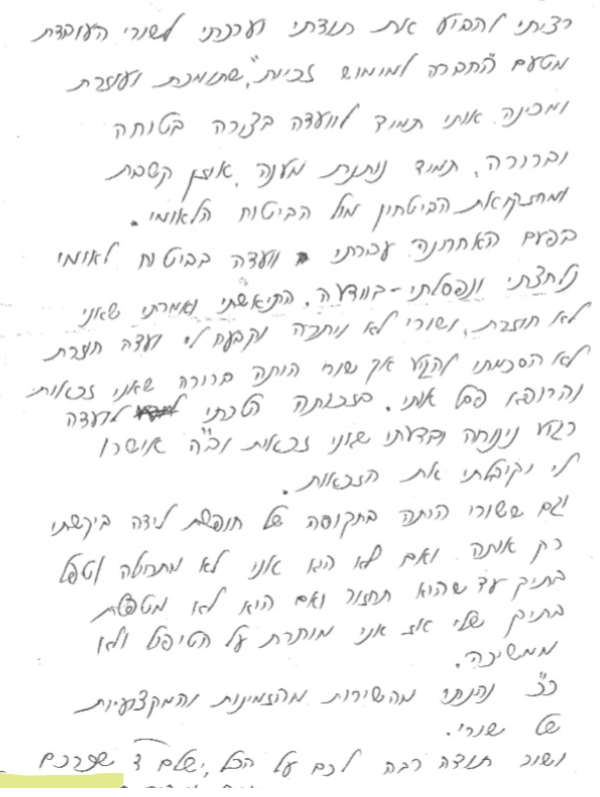 רציתי להביע את תודתי וערכתי לשורי העובדת
מטעם "החברה למימוש זכויות", שתומכת ועוזרת
ומכינה אותי תמיד לוועדה בצורה בטוחה
וברורה, תמיד נותנת מענה, אוזן קשבת
ומחזקת את הביטחון מול הביטוח הלאומי.
בפעם האחרונה עברתי וועדה בביטוח לאומי
נלחצתי ונפסלתי - בוועדה. התיאשתי ואמרתי שאני
לא חוזרת, ושורי לא ויתרה וקבעה לי ועדה חוזרת
לא הסכמתי להגיע אך שורי היתה ברורה שאני זכאית
והרופא פסל אותי. בזכותה הלכתי לועדה
רגע נינוחה וידעתי שאני זכאית וב"ה אישרו
לי וקיבלתי את הזכאות.
וגם ששורי היתה בתקופה של חופשת לידה ביקשתי
רק אותה ואם לא היא אני לא מתחילה לטפל
בתיק עד שהיא תחזור ואם היא לא מטפלת
בתיק שלי אז אני מוותרת על הטיפול ולא
ממשיכה.
כ"כ נהנתי מהשירות מהזמינות והמקצועיות
של שורי.
ושוב תודה רבה לכם על הכל, ישלם ד' שכרכם